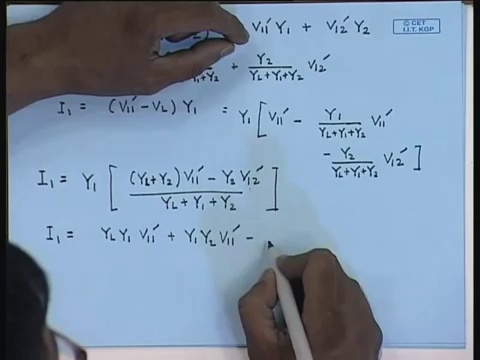 V11' Y1 + V12' Y2
© CET
I.I.T. KGP
+ Y2 / (YL+Y1+Y2) V12'
I1 = (V11' - VL) Y1 = Y1 [ V11' - Y1 / (YL+Y1+Y2) V11'
- Y2 / (YL+Y1+Y2) V12' ]
I1 = Y1 [ ((YL+Y2) V11' - Y2 V12') / (YL + Y1 + Y2) ]
I1 = YL Y1 V11' + Y1 Y2 V11' -